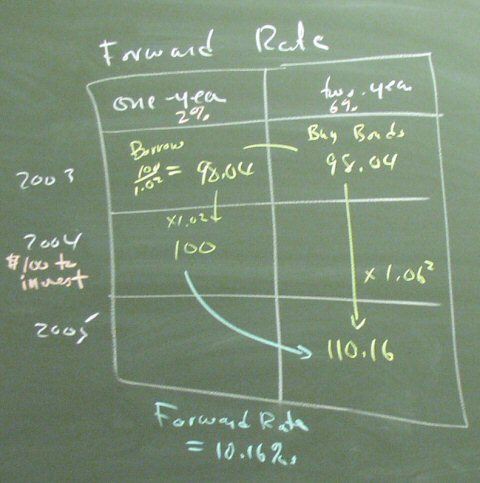 Forward Rate
one-year
2%
two-year
6%
2003
Borrow
100/1.02 = 98.04
Buy Bonds
98.04
2004
$100 to
invest
x1.02
100
x 1.06²
2005
110.16
Forward Rate
= 10.16%